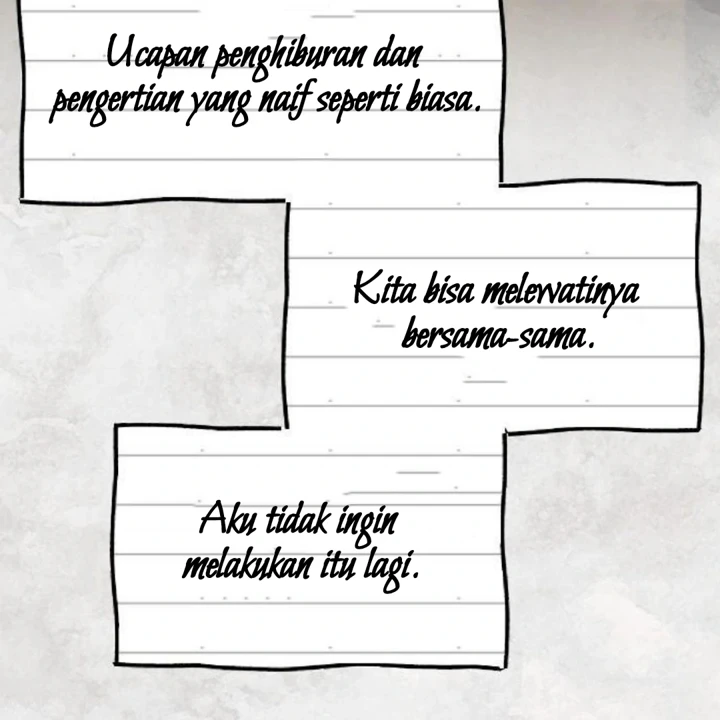 Ucapan penghiburan dan
pengertian yang naif seperti biasa.
Kita bisa melewatinya
bersama-sama.
Aku tidak ingin
melakukan itu lagi.